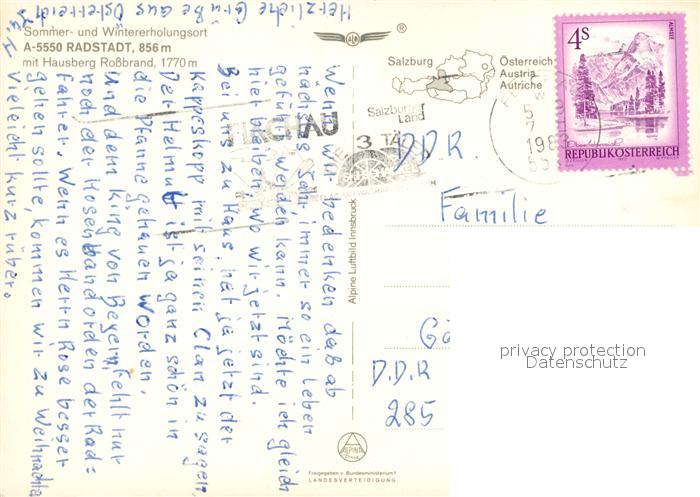 Sommer- und Wintererholungsort
A-5550 RADSTADT, 856 m
mit Hausberg Roßbrand, 1770 m
Wenn wir bedenken daß ab
nächstes Jahr, immer so ein Leben
geführt werden kann. Möchte ich gleich
hier bleiben, wo wir jetzt sind.
Bei uns zu Haus, hat ja jetzt der
mit seinen Clan zu sagen.
Der Helmut ist ja ganz schön in
die Pfanne gehauen worden.
Und dem King von Bayern, fehlt nur
noch der Hosenbandorden der Rad=
fahrer. Wenn es Herrn Rose besser
gehen sollte, kommen wir zu Weihnachten
Vielleicht kurz rüber.
Herzliche Grüße aus Österreich
Alpine Luftbild Innsbruck
Salzburg
Österreich
Austria
Autriche
Salzburger
Land
FLACHAU
3 TÄ
5
7
1983
4S
ALMSEE
REPUBLIK ÖSTERREICH
DDR.
Familie
D.D.R
285
privacy protection
Datenschutz
ALPINE
Freigegeben v. Bundesministerium f.
LANDESVERTEIDIGUNG